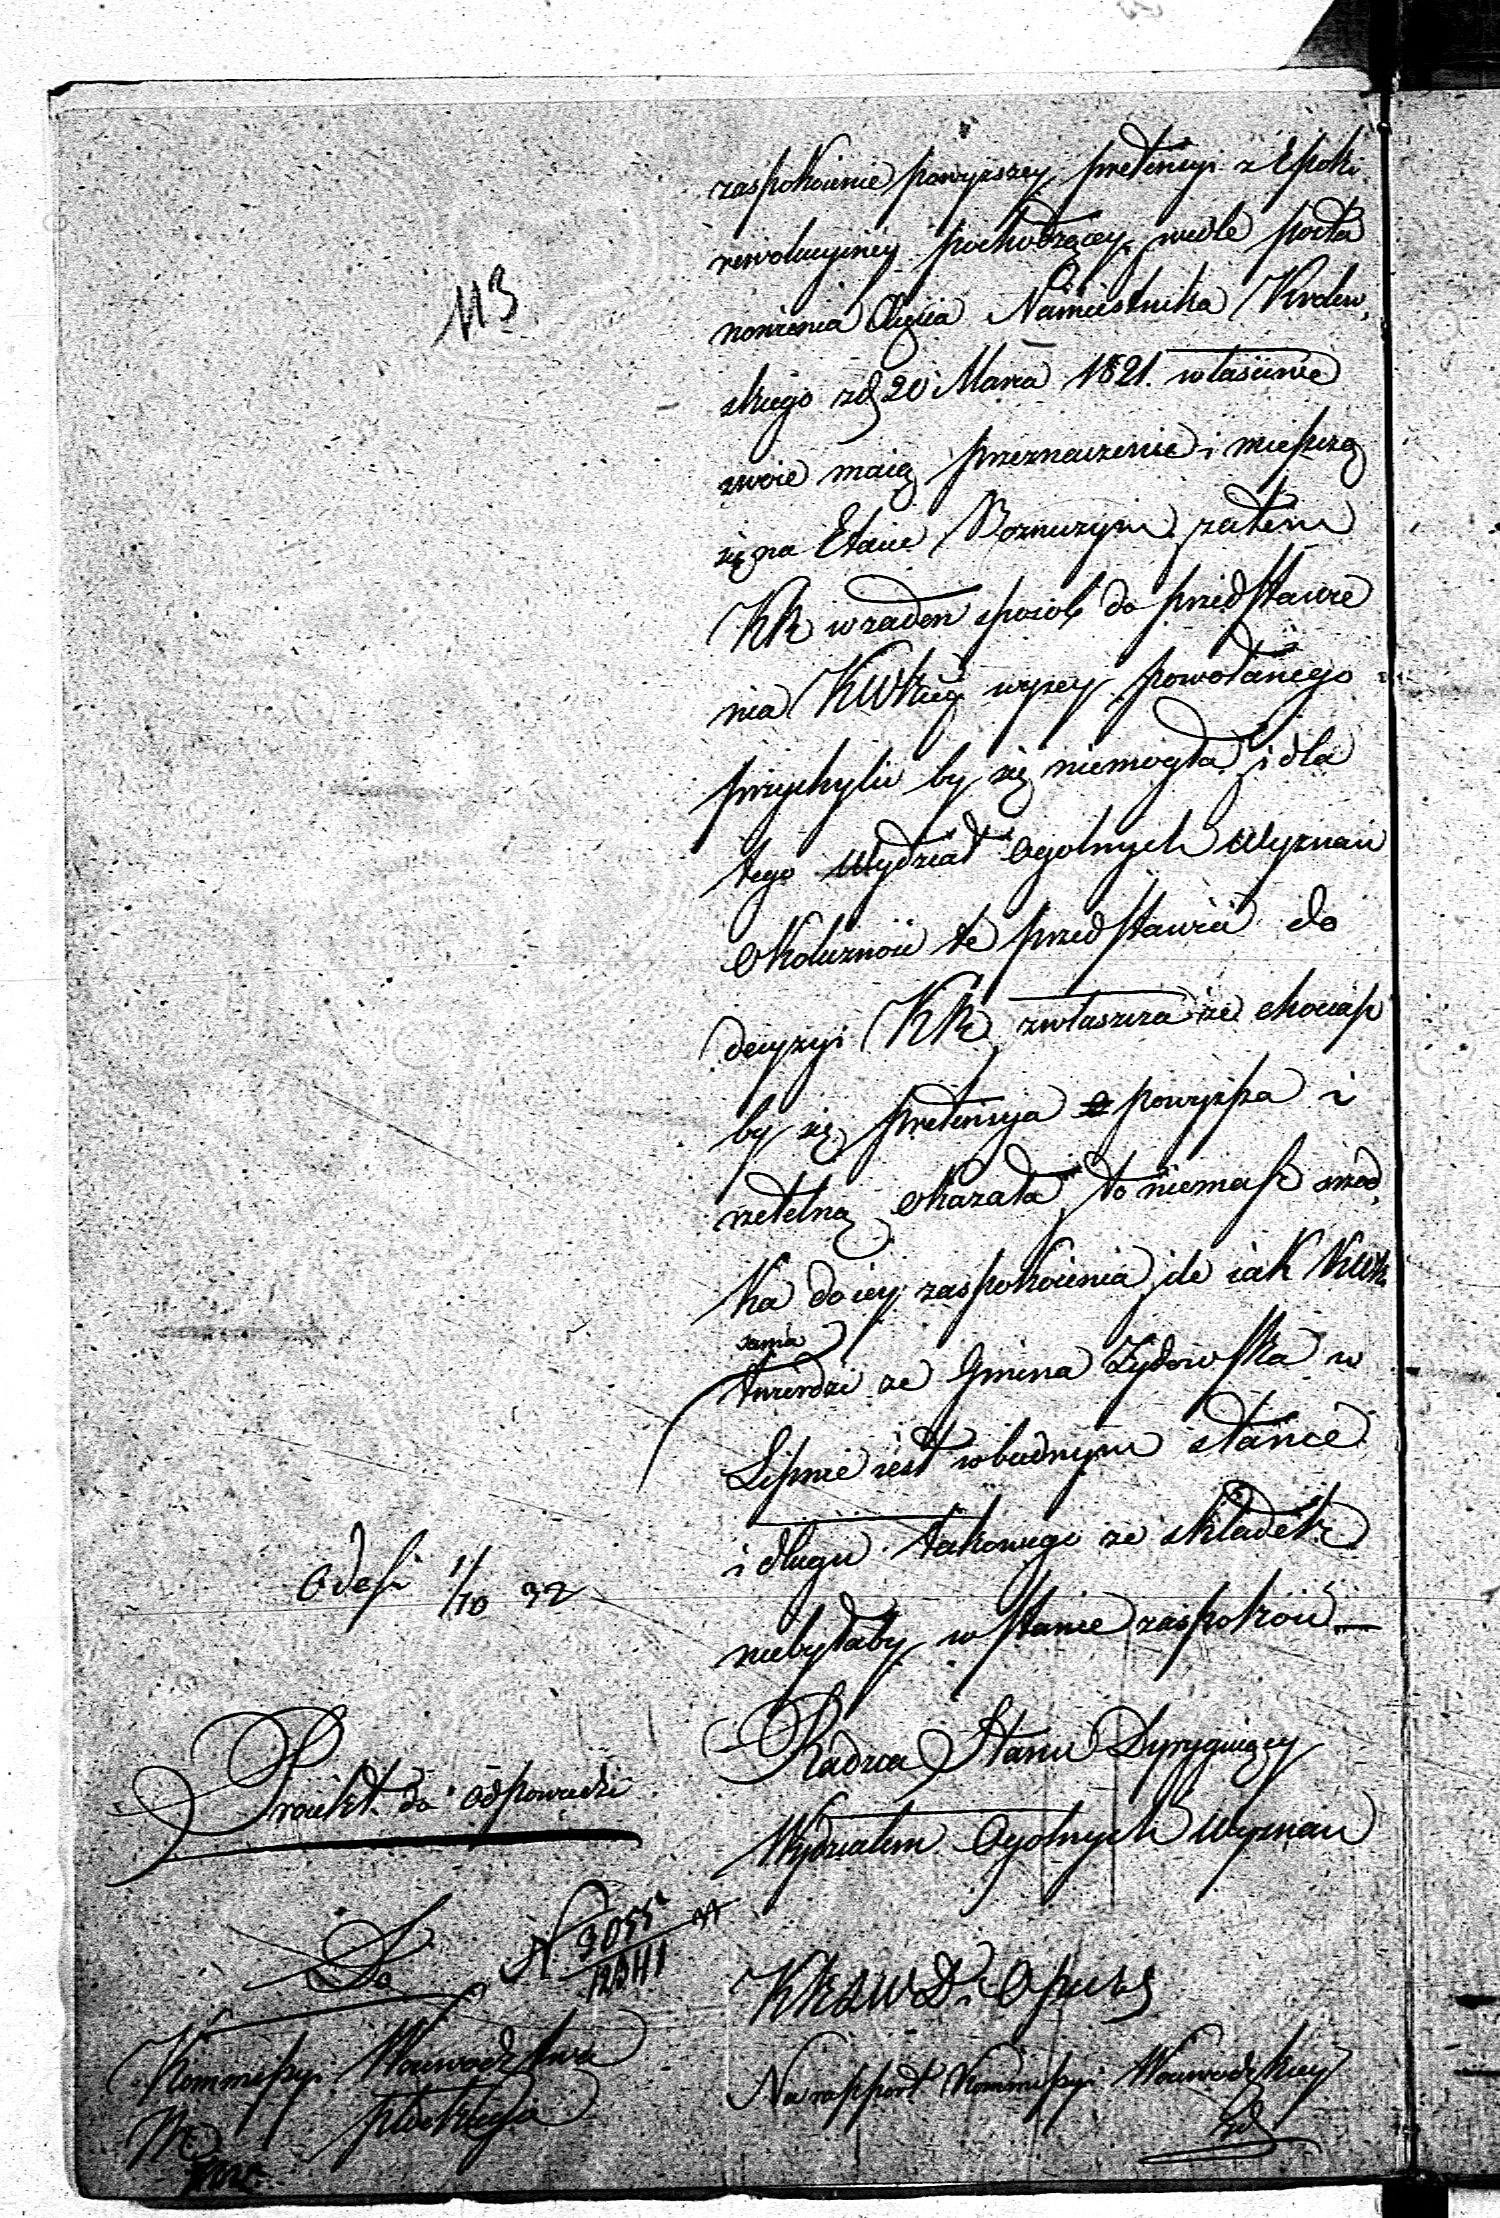 113
zaspokoienie powyższey pretensyi z Epoki
rewolucyiney pochodzącey, wedle posta
nowienia Xięcia Namiestnika Krolew,
skiego zd 20 Marca 1821. właściwie
swoie maią przeznaczenie i mieszczą
się na Etacie Rocznym zatem
KR w żaden sposob do przedstawie
nia KWkiey wyżey powołanego
przychylić by się niemogła, i dla
tego Wydział Ogolnych Wyznań
Okoliczność te przedstawia do
decyzyi KR, zwłaszcza że chociaż
by się pretensya powyższa i
rzetelną okazała, to niemasz środ,
ka do iey zaspokoienia, ile iak KWka
sama
twierdzi że Gmina Żydowska w
Lipnie iest w biednym stanie
i długu takowego ze składek
niebyłaby w stanie zaspokoić.—
Radzca Stanu Dyryguiący
Wydziałem Ogolnych Wyznań
Odesz 1/10 32
Proiekt do odpowiedzi
Do
N 3055
Kommissyi Woiewodztwa
Płockiego
KRSWD i Op
Na rapport Kommissyi Woiewodzkiey
zd